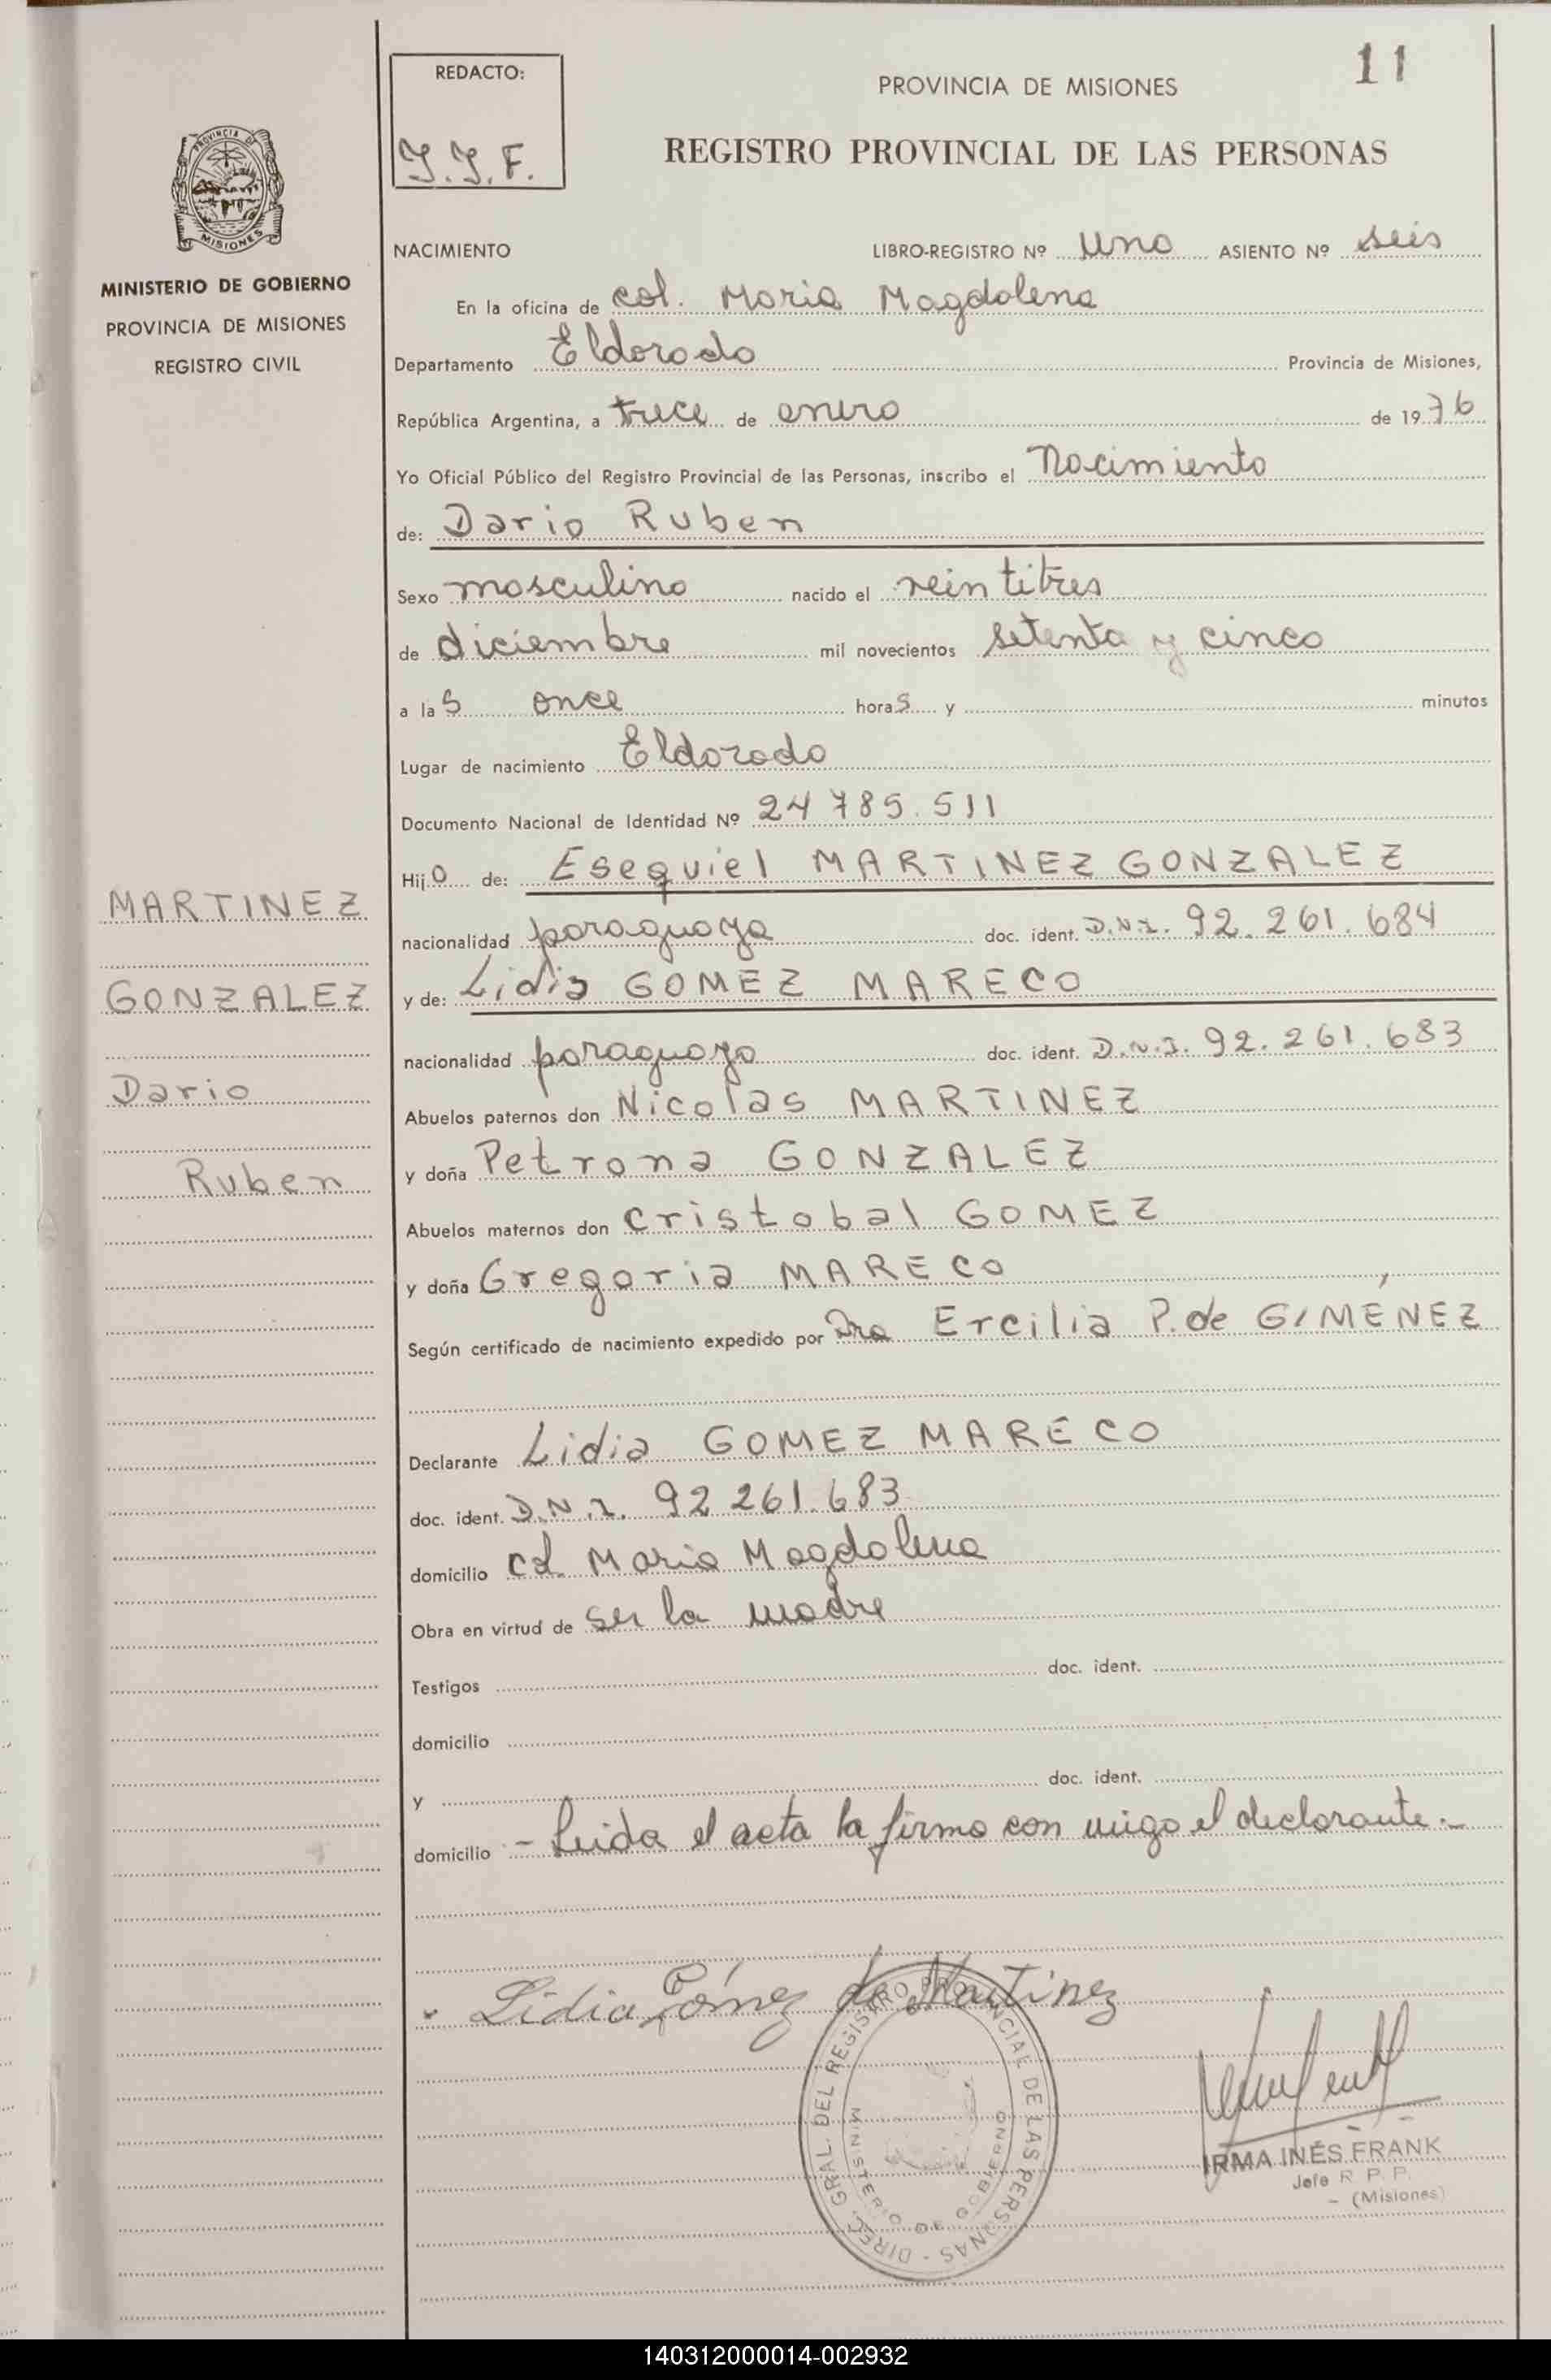 11
REDACTO:
J.J.F.
PROVINCIA DE MISIONES
REGISTRO PROVINCIAL DE LAS PERSONAS
PROVINCIA DE
MISIONES
MINISTERIO DE GOBIERNO
PROVINCIA DE MISIONES
REGISTRO CIVIL
NACIMIENTO LIBRO-REGISTRO Nº uno ASIENTO Nº seis
En la oficina de col. Maria Magdalena
Departamento Eldorado Provincia de Misiones,
República Argentina, a trece de enero de 1976
Yo Oficial Público del Registro Provincial de las Personas, inscribo el Nacimiento
de: Dario Ruben
Sexo masculino nacido el veintitres
de diciembre mil novecientos setenta y cinco
a las once horas y minutos
Lugar de nacimiento Eldorado
Documento Nacional de Identidad Nº 24 785.511
Hijo de: Esequiel MARTINEZ GONZALEZ
nacionalidad paraguaya doc. ident. D.N.I. 92.261.684
y de: Lidia GOMEZ MARECO
nacionalidad paraguaya doc. ident. D.N.I. 92.261.683
Abuelos paternos don Nicolas MARTINEZ
y doña Petrona GONZALEZ
Abuelos maternos don Cristobal GOMEZ
y doña Gregoria MARECO
Según certificado de nacimiento expedido por Dra Ercilia P. de GIMÉNEZ
Declarante Lidia GOMEZ MARECO
doc. ident. D.N.I. 92 261.683
domicilio Col. Maria Magdalena
Obra en virtud de ser la madre
Testigos doc. ident.
domicilio
y doc. ident.
domicilio - Leida el acta la firma con migo el declarante.-
MARTINEZ
GONZALEZ
Dario
Ruben
Lidia Gómez de Martinez
DIREC. GRAL. DEL REGISTRO PROVINCIAL DE LAS PERSONAS -
MINISTERIO DE GOBIERNO
IRMA INÉS FRANK
Jefe R. P. P.
- (Misiones)
140312000014-002932